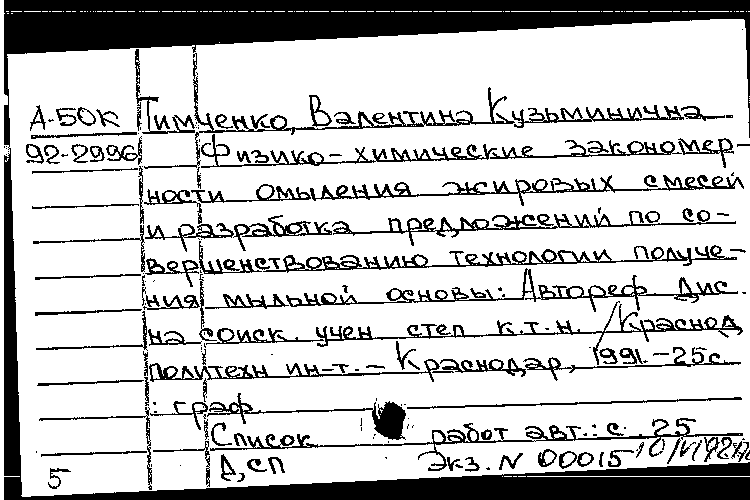 А-БОК Тимченко, Валентина Кузьминична
92-2996 Физико-химические закономер-
ности омыления жировых смесей
и разработка предложений по со-
вершенствованию технологии получе-
ния мыльной основы: Автореф Дис.
на соиск. учен степ к.т.н. /Краснод
политехн ин-т. - Краснодар, 1991. - 25с.
: граф.
Список работ авт.: с. 25
Д,СП Экз. N 00015
5